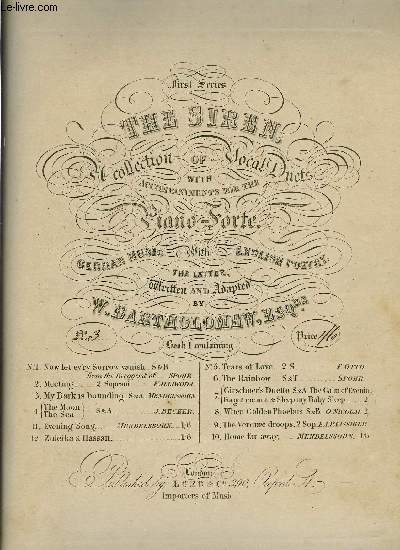 LE-livre.com
First Series
THE SIREN,
A collection OF Vocal Duets,
WITH
ACCOMPANIMENTS FOR THE
Piano-Forte.
GERMAN MUSIC With ENGLISH POETRY,
THE LATTER,
Written AND Adapted
BY
W. BARTHOLOMEW, ESQRE
No. 3 Price 1/6
Book 1 containing
No. 1. Now let ev'ry Sorrow vanish. S & B
from the Berggeist of SPOHR.
2. Meeting 2 Soprani KALLIWODA.
3. My Bark is bounding. S & A MENDELSSOHN
4. The Moon
The Sea S & A J. BECKER.
11. Evening Song MENDELSSOHN 1/6
12. Zuleika & Hassan 1/6
No. 5. Tears of Love. 2 S F. OTTO
6. The Rainbow S & T SPOHR.
7. Girschner's Duetto S & A The Calm of Evenin
Sleep my Baby Sleep
8. When Golden Phoebus S & B O. NICOLAI 2
9. The Verbenæ droops. 2 Sop.
10. Home far away. MENDELSSOHN. 1/6
London
Published by
Importers of Music